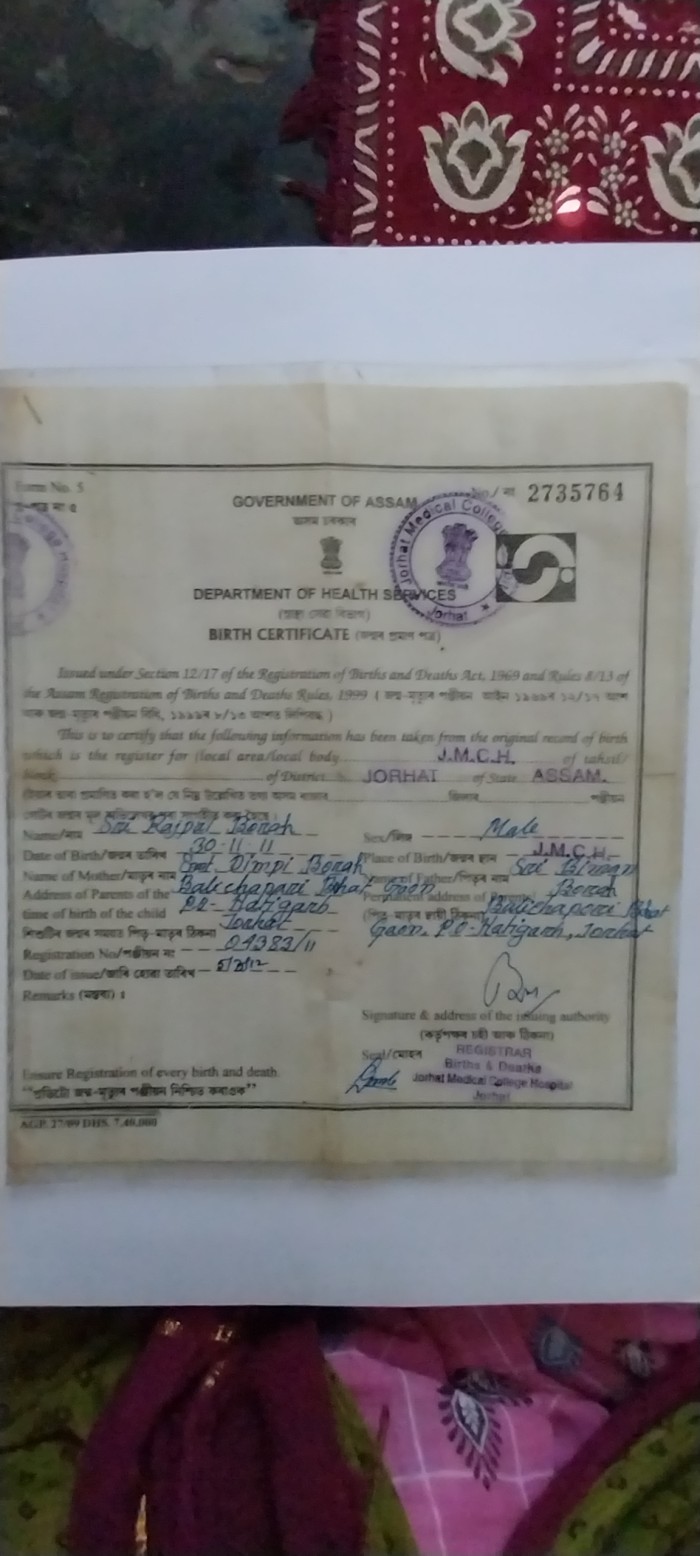 Form No. 5
No./ নং 2735764
GOVERNMENT OF ASSAM
অসম চৰকাৰ
Jorhat Medical College
Jorhat
DEPARTMENT OF HEALTH SERVICES
(স্বাস্থ্য সেবা বিভাগ)
BIRTH CERTIFICATE (জন্মৰ প্ৰমাণ পত্ৰ)
Issued under Section 12/17 of the Registration of Births and Deaths Act, 1969 and Rules 8/13 of
the Assam Registration of Births and Deaths Rules, 1999 ( জন্ম-মৃত্যুৰ পঞ্জীয়ন আইন ১৯৬৯ৰ ১২/১৭
This is to certify that the following information has been taken from the original record of birth
which is the register for (local area/local body J.M.C.H. of tahsil/
block of District JORHAT of State ASSAM.
Name/নাম Sri Rajpal Borah Sex/লিঙ্গ Male
Date of Birth/জন্মৰ তাৰিখ 30-11-11 Place of Birth/জন্মৰ স্থান J.M.C.H.
Name of Mother/মাতৃৰ নাম Smt. Dimpi Borah Name of Father/পিতৃৰ নাম Sri Biman Borah
Address of Parents at the Balichapori Bhat Gaon Permanent address of Parents/ Balichapori Bhat
time of birth of the child P.O- Hatigarh Gaon. P.O- Hatigarh, Jorhat
Jorhat
Registration No/পঞ্জীয়ন নং 04383/11
Date of issue/জাৰি হোৱা তাৰিখ 5/3/12
Remarks (মন্তব্য) :
Signature & address of the issuing authority
(কৰ্তৃপক্ষৰ চহী আৰু ঠিকনা)
Seal/মোহৰ REGISTRAR
Births & Deaths
Jorhat Medical College Hospital
Jorhat
Ensure Registration of every birth and death
"প্ৰতিটো জন্ম-মৃত্যুৰ পঞ্জীয়ন নিশ্চিত কৰাওক"
AGP. 27/09 DHS. 7,40,000